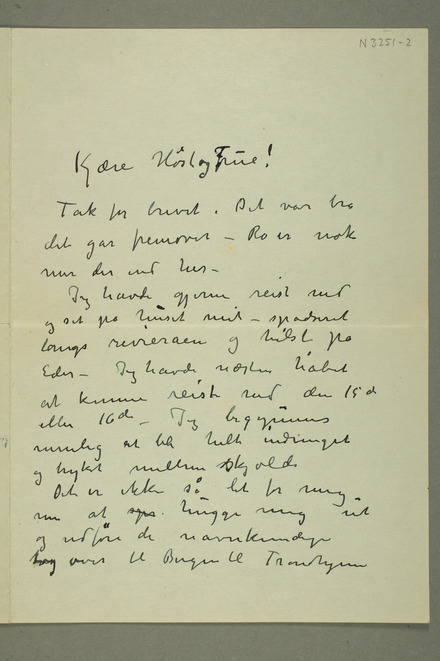 N 3251-2
Kjære Høst og Frue!
Tak for brevet. Det var bra
det går fremover – Ro er nok
mer der end her –
Jeg havde gjerne reist ned
og set på huset mit – spadseret
langs rivieraen og hilst på
Eder – Jeg havde næsten håbet
at kunne reist ned den 15de
eller 16de – Jeg begynner
nemlig at bli helt indringet
og trykket mellem skjolde
Det er ikke så let for mig
nu at hugge mig ut
og udføre de navnkundige
tog over til Bergen til Trondhjem